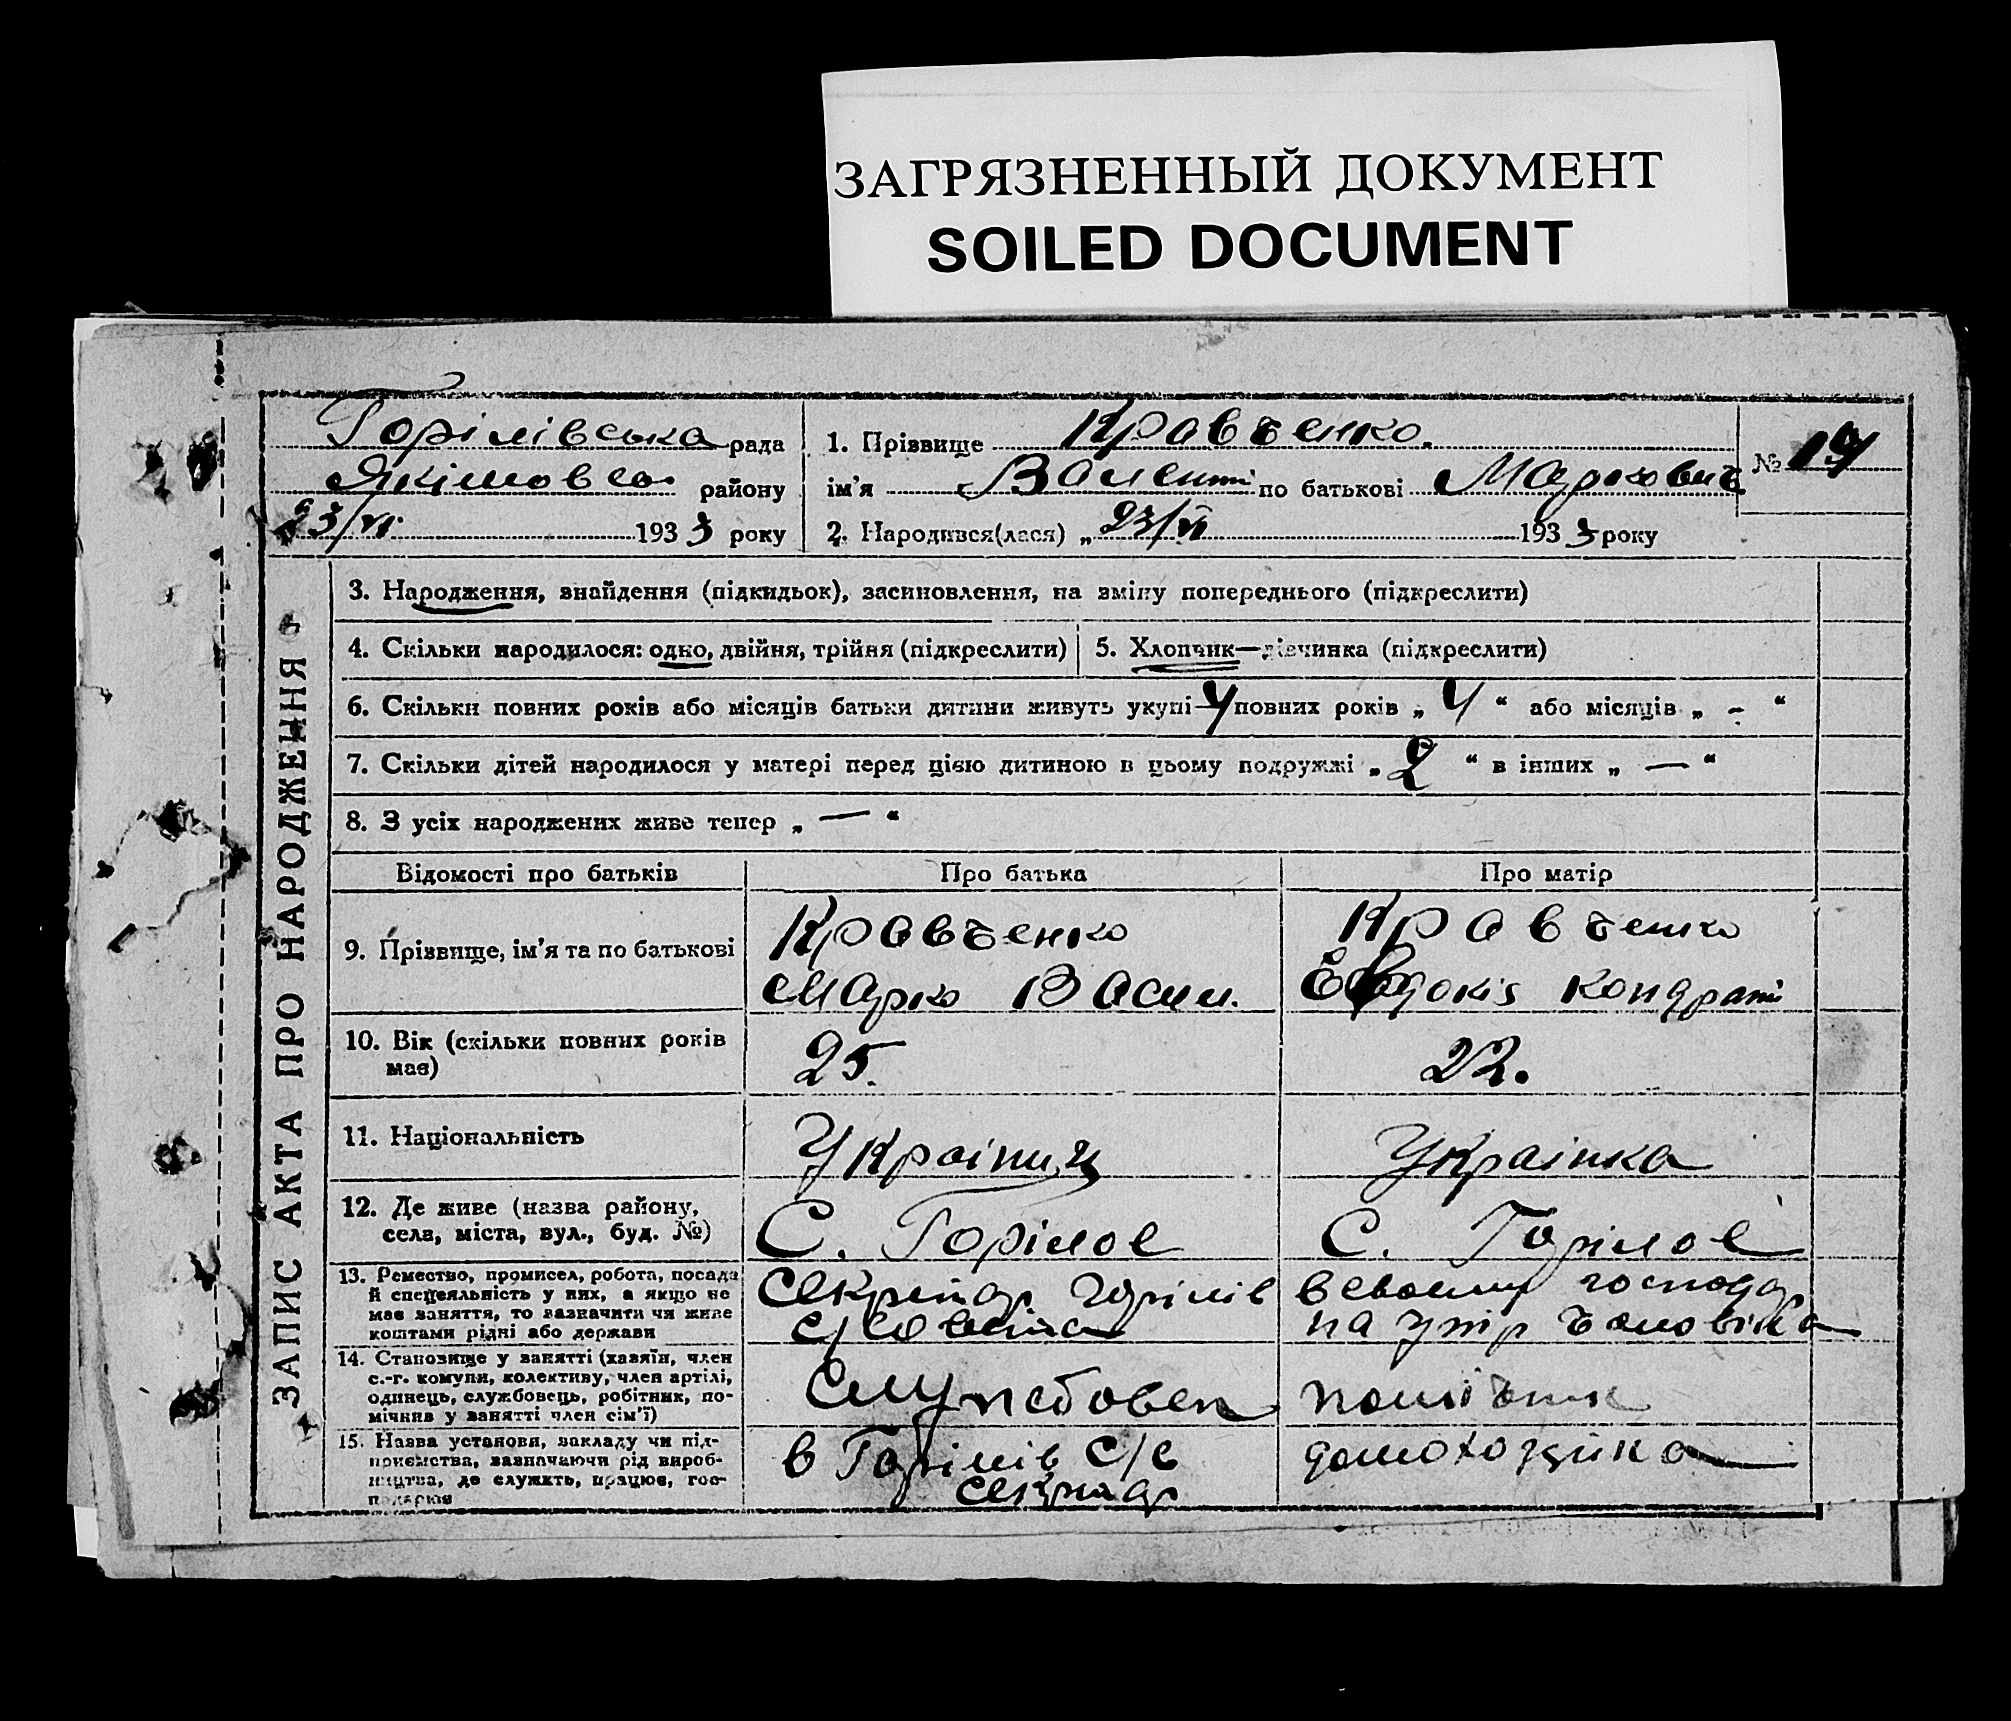 ЗАГРЯЗНЕННЫЙ ДОКУМЕНТ
SOILED DOCUMENT
ЗАПИС АКТА ПРО НАРОДЖЕННЯ
Горілівська рада
Якімовсь району
23/VI 1933 року
1. Прізвище Кравченко.
ім'я Валенті по батькові Маркович
2. Народився(лася) „ 23/VI 1933 року
№ 19
3. Народження, знайдення (підкидьок), засиновлення, на зміну попереднього (підкреслити)
4. Скільки народилося: одно, двійня, трійня (підкреслити)
5. Хлопчик—дівчинка (підкреслити)
6. Скільки повних років або місяців батьки дитини живуть укупі 4 повних років „ 4 “ або місяців „ - “
7. Скільки дітей народилося у матері перед цією дитиною в цьому подружжі „ 2 “ в інших „ — “
8. З усіх народжених живе тепер „ — “
Відомості про батьків
Про батька
Про матір
9. Прізвище, ім'я та по батькові
Кравченко
Марко Васил.
Кравченко
Евдокія Кондраті
10. Вік (скільки повних років
має)
25.
22.
11. Національність
Україниц
Українка
12. Де живе (назва району,
села, міста, вул., буд. №)
С. Горілое
С. Горілое
13. Ремество, промисел, робота, посада
й спеціяльність у них, а якщо не
має заняття, то зазначити чи живе
коштами рідні або держави
Секритар Горілів
с/совета
в своему господар
на утр чоловіка
14. Становище у занятті (хазяїн, член
с.-г. комуни, колективу, член артілі,
одинець, службовець, робітник, по-
мічник у занятті член сім'ї)
Службовец
помічник
15. Назва установи, закладу чи під-
приємства, зазначаючи рід вироб-
ництва, де служить, працює, гос-
подарює
в Горілів с/с
секритар
домохозяйка